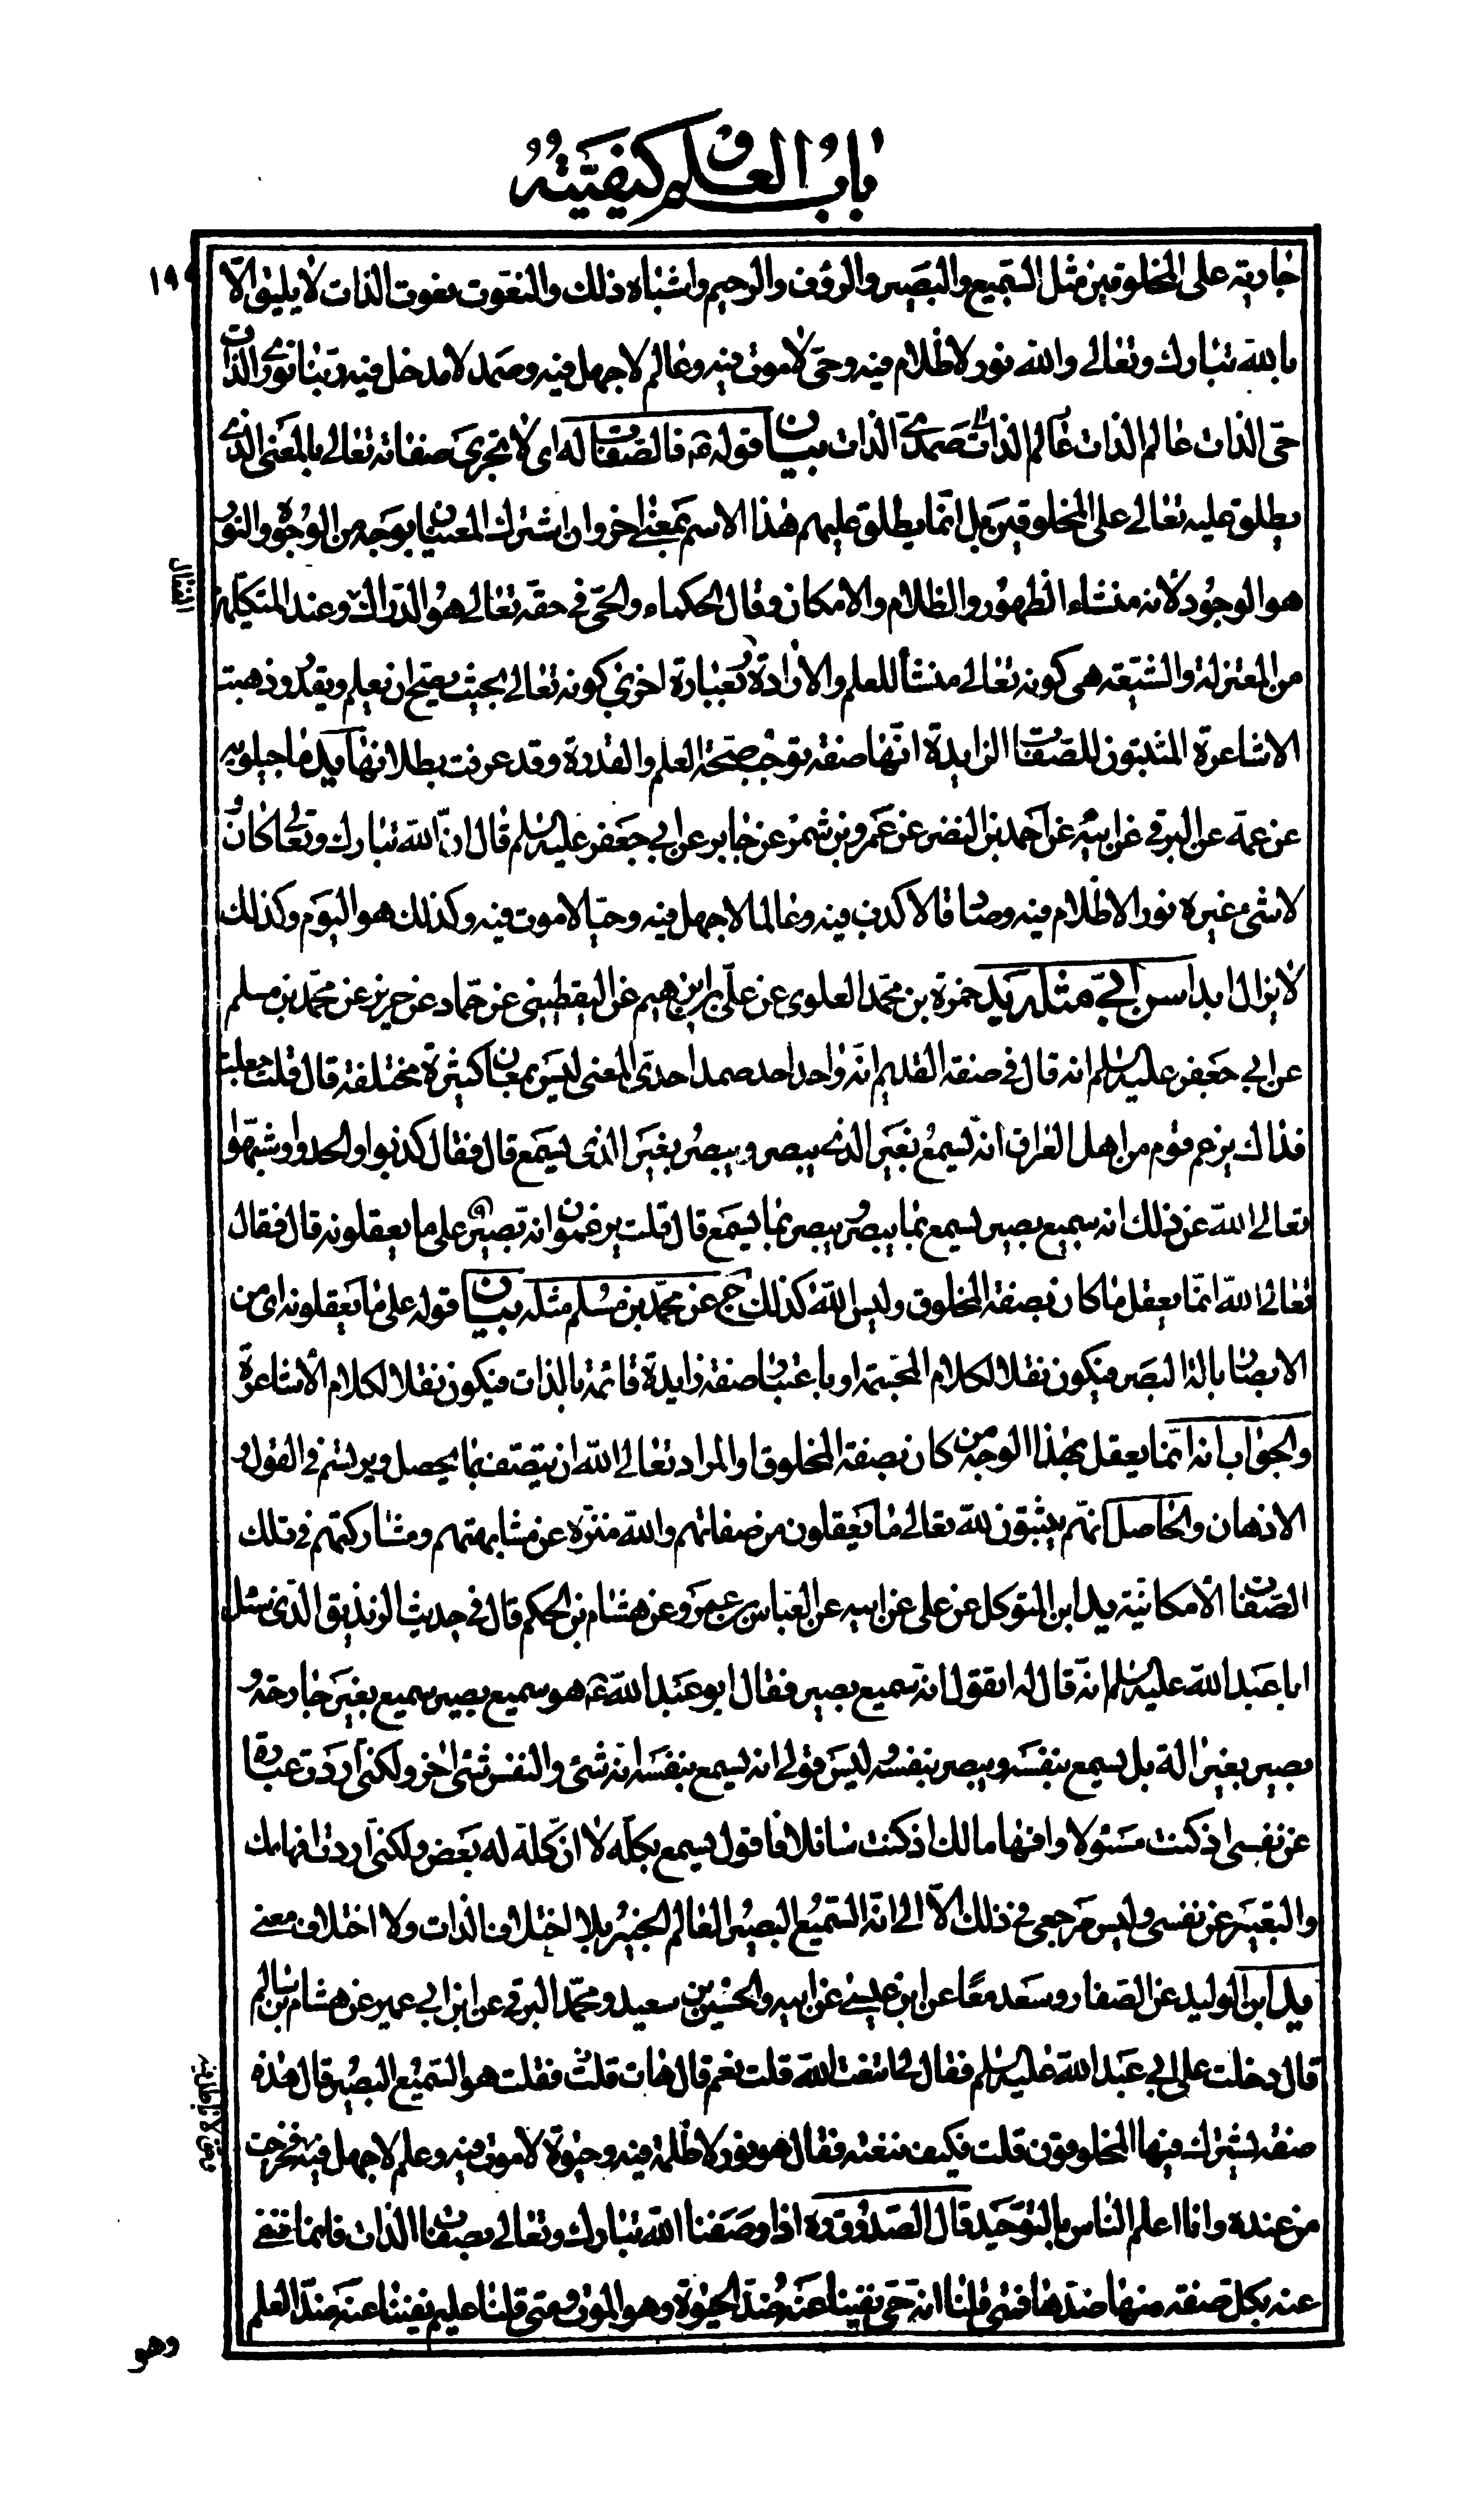 باب العلم و كيفيته
جارية على المخلوقين مثل السميع والبصير والرؤف والرحيم واشباه ذلك والنعوت نعوت الذات لا يليق الا
بالله تبارك وتعالى والله نور لا ظلام فيه وحى لا موت فيه وعالم لا جهل فيه وصمد لا مدخل فيه ربنا نورى الذات
حى الذات عالم الذات عالم الذات صمدى الذات بيان قوله ع فالصفات له اى لا تجرى صفاته تعالى بالمعنى الذى
يطلق عليه تعالى على المخلوقين بل انما يطلق عليهم هذا الاسم بمعنى اخر وان اشترك المعنيان بوجه من الوجوه والنور
هو الوجود لانه منشاء الظهور والظلام والامكان وقال الحكماء والحى فى حقه تعالى هو الدراك الفعال وعند المتكلمين
من المعتزلة والشيعة هى كونه تعالى منشأ للعلم والارادة وبعبارة اخرى كونه تعالى بحيث يصح ان يعلم ويقدر وذهبت
الاشاعرة المثبتون للصفات الزايدة انها صفة توجب صحة العلم والقدرة وقد عرفت بطلانها يد ماجيلويه
عن عمه عن البرقى عن ابيه عن احمد بن النضر عن عمرو بن شمر عن جابر عن ابى جعفر عليه السلم قال ان الله تبارك وتعالى كان و
لا شىء غيره نورا لا ظلام فيه وصادقا لا كذب فيه وعالما لا جهل فيه وحيا لا موت فيه وكذلك هو اليوم وكذلك
لا يزال ابدا سن ابى مثله يد حمزة بن محمد العلوى عن على بن ابرهيم عن اليقطينى عن حماد عن حريز عن محمد بن مسلم
عن ابى جعفر عليه السلم انه قال فى صفة القديم انه واحد احد صمد احدى المعنى ليس بمعان كثيرة مختلفة قال قلت جعلت
فداك يزعم قوم من اهل العراق انه يسمع بغير الذى يبصر ويبصر بغير الذى يسمع قال فقال كذبوا والحدوا وشبهوا
تعالى الله عن ذلك انه سميع بصير يسمع بما يبصر ويبصر بما يسمع قال قلت يزعمون انه بصير على ما يعقلونه قال فقال
تعالى الله انما يعقل ما كان بصفة المخلوق وليس الله كذلك ج عن محمد بن مسلم مثله بيان قوله على ما يعقلونه اى من
الابصار بالة البصر فيكون نقلا لكلام المجسمة او باعتبار صفة زايدة قائمة بالذات فيكون نقلا لكلام الاشاعرة
والجواب انه انما يعقل بهذا الوجه من كان بصفة المخلوق او المراد تعالى الله ان يتصف بما يحصل ويرتسم فى العقول و
الاذهان والحاصل انهم يثبتون لله تعالى ما يعقلون من صفاتهم والله منزه عن مشابهتهم ومشاركتهم فى تلك
الصفات الامكانية يد ابن المتوكل عن على عن ابيه عن العباس بن عمرو عن هشام بن الحكم قال فى حديث الزنديق الذى سئل
ابا عبد الله عليه السلم انه قال له اتقول انه سميع بصير فقال ابو عبد الله ع هو سميع بصير سميع بغير جارحة و
بصير بغير الة بل يسمع بنفسه ويبصر بنفسه ليس قولى انه يسمع بنفسه انه شئ والنفس شئ اخر ولكنى اردت عبارة
عن نفسى اذ كنت مسئولا وافهاما لك اذ كنت سائلا فاقول يسمع بكله لا ان كله له بعض ولكنى اردت افهامك
والتعبير عن نفسى وليس مرجعى فى ذلك الا الى انه السميع البصير العالم الخبير بلا اختلاف الذات ولا اختلاف معنى
يد ابن الوليد عن الصفار وسعد معا عن ابن عيسى عن ابيه والحسين بن سعيد ومحمد البرقى عن ابن ابى عمير عن هشام بن سالم
قال دخلت على ابى عبد الله عليه السلم فقال لى اتنعت الله قلت نعم قال هات قلت فقلت هو السميع البصير قال هذه
صفة يشترك فيها المخلوقون قلت فكيف ننعته فقال هو نور لا ظلمة فيه وحيوة لا موت فيه وعلم لا جهل فيه فخرجت
من عنده وانا اعلم الناس بالتوحيد قال الصدوق ره اذا وصفنا الله تبارك وتعالى بصفات الذات فانما ننفى
عنه بكل صفة منها ضدها فمتى قلنا انه حى نفينا عنه ضد الحيوة وهو الموت ومتى قلنا عليم نفينا عنه ضد العلم
وهو